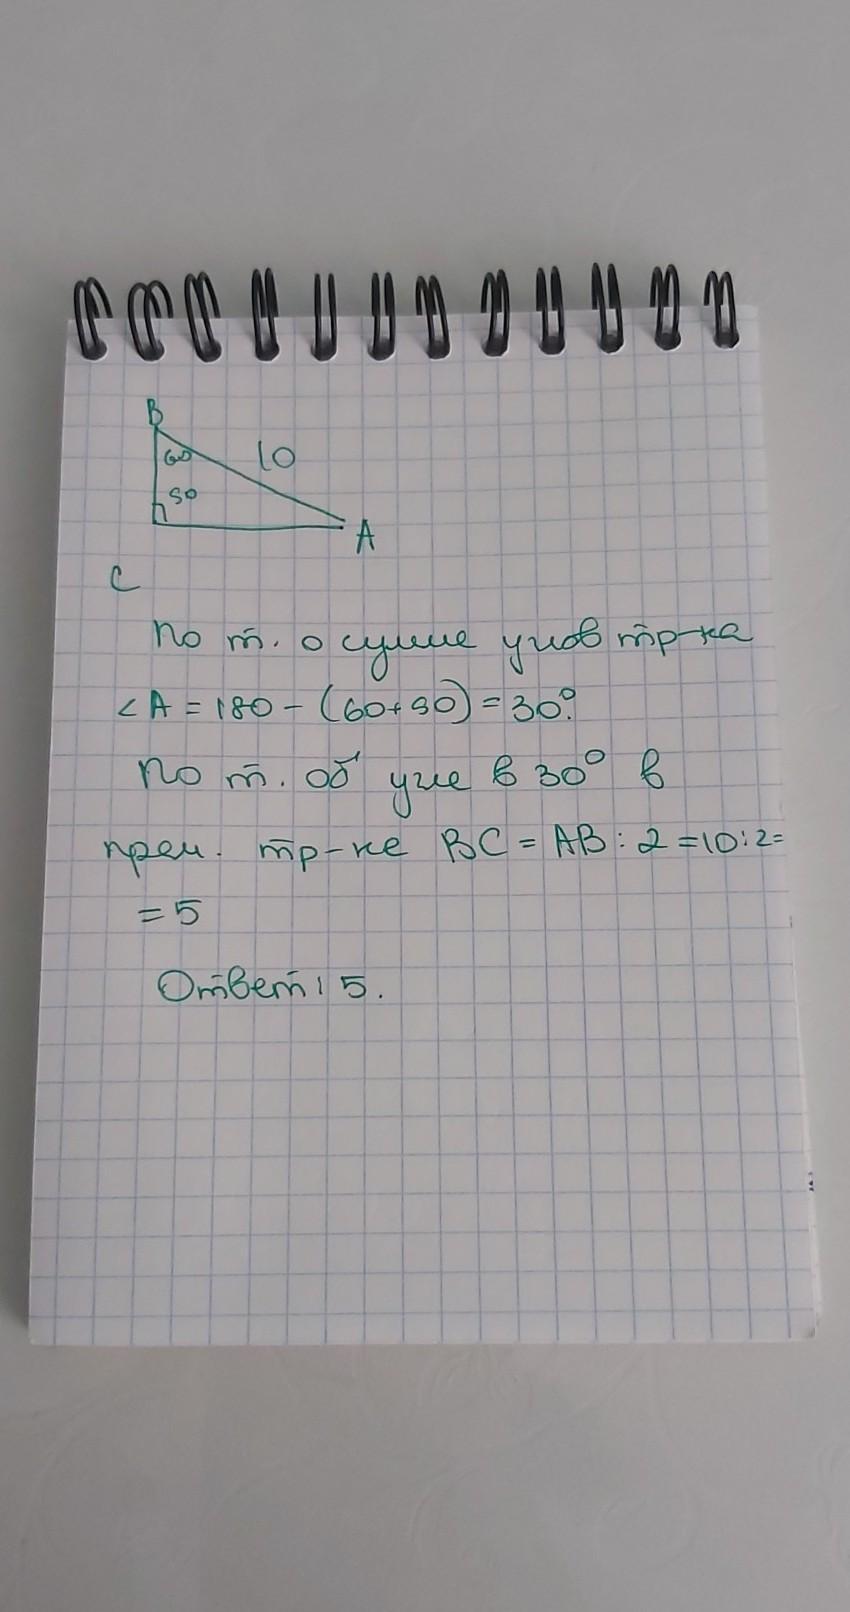 B
60
10
90
A
C
По т. о сумме углов тр-ка
∠A = 180 - (60+90) = 30°.
По т. об угле в 30° в
прям. тр-ке BC = AB : 2 = 10 : 2 =
= 5
Ответ: 5.